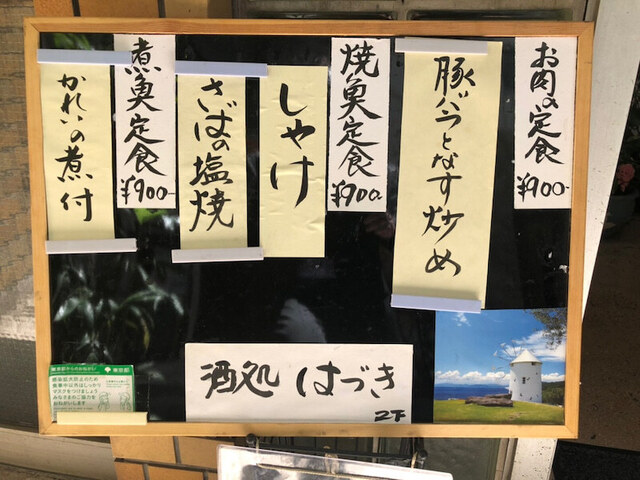 お肉の定食
¥900-
豚バラとなす炒め
焼魚定食
¥900-
しゃけ
さばの塩焼
煮魚定食
¥900-
かれいの煮付
酒処 はづき
2F
東京都
感染拡大防止のため